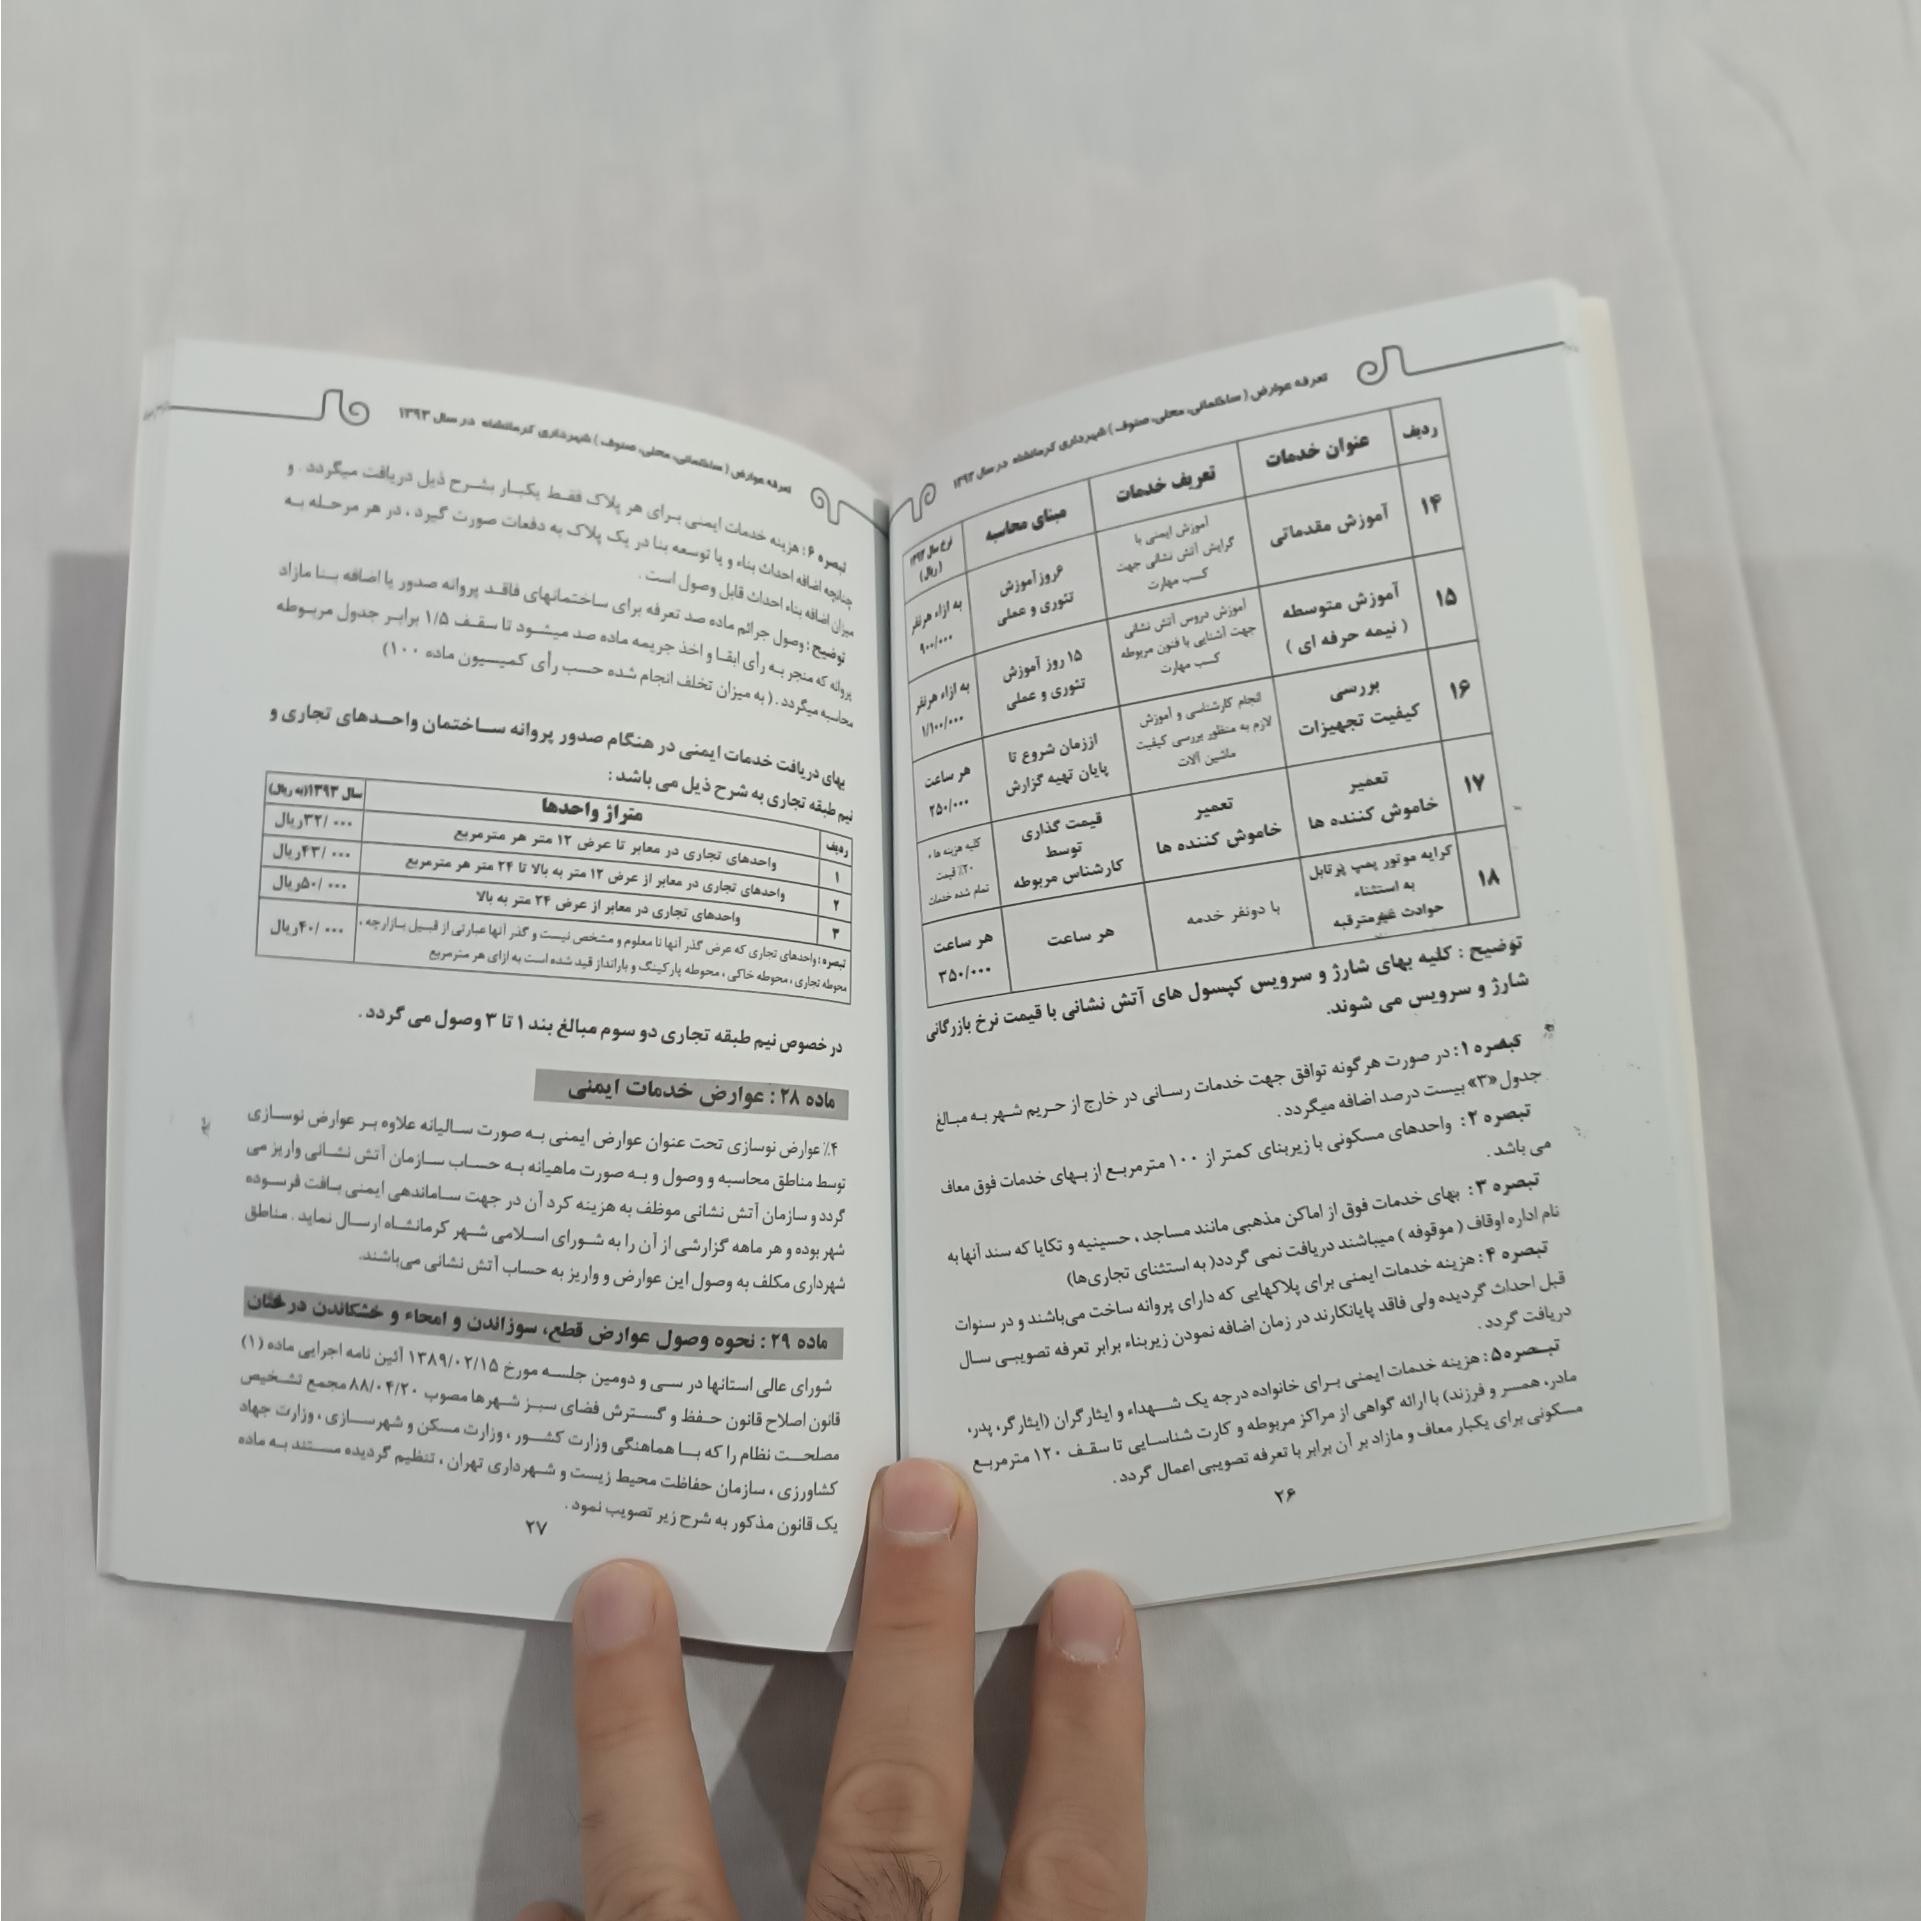 تعرفه عوارض ( ساختمانی، محلی، صنوف ) شهرداری کرمانشاه در سال ۱۳۹۳
ردیف عنوان خدمات تعریف خدمات مبنای محاسبه نرخ سال ۱۳۹۳ (ریال)
۱۴ آموزش مقدماتی آموزش ایمنی با گرایش آتش نشانی جهت کسب مهارت ۶روز آموزش تئوری و عملی به ازاء هرنفر ۹۰۰/۰۰۰
۱۵ آموزش متوسطه ( نیمه حرفه ای ) آموزش دروس آتش نشانی جهت آشنایی با فنون مربوطه کسب مهارت ۱۵ روز آموزش تئوری و عملی به ازاء هرنفر ۱/۱۰۰/۰۰۰
۱۶ بررسی کیفیت تجهیزات انجام کارشناسی و آموزش لازم به منظور بررسی کیفیت ماشین آلات اززمان شروع تا پایان تهیه گزارش هر ساعت ۲۵۰/۰۰۰
۱۷ تعمیر خاموش کننده ها تعمیر خاموش کننده ها قیمت گذاری توسط کارشناس مربوطه کلیه هزینه ها + ۲۰٪ قیمت تمام شده خدمات
۱۸ کرایه موتور پمپ پرتابل به استثناء حوادث غیرمترقبه با دونفر خدمه هر ساعت هر ساعت ۳۵۰/۰۰۰
توضیح : کلیه بهای شارژ و سرویس کپسول های آتش نشانی با قیمت نرخ بازرگانی
شارژ و سرویس می شوند.
تبصره ۱: در صورت هرگونه توافق جهت خدمات رسانی در خارج از حریم شهر به مبالغ
جدول «۳» بیست درصد اضافه میگردد .
تبصره ۲: واحدهای مسکونی با زیربنای کمتر از ۱۰۰ مترمربع از بهای خدمات فوق معاف
می باشد .
تبصره ۳: بهای خدمات فوق از اماکن مذهبی مانند مساجد ، حسینیه و تکایا که سند آنها به
نام اداره اوقاف ( موقوفه ) میباشند دریافت نمی گردد( به استثنای تجاری‌ها)
تبصره ۴: هزینه خدمات ایمنی برای پلاکهایی که دارای پروانه ساخت می‌باشند و در سنوات
قبل احداث گردیده ولی فاقد پایانکارند در زمان اضافه نمودن زیربناء برابر تعرفه تصویبی سال
دریافت گردد .
تبصره۵: هزینه خدمات ایمنی برای خانواده درجه یک شهداء و ایثارگران (ایثارگر، پدر،
مادر، همسر و فرزند) با ارائه گواهی از مراکز مربوطه و کارت شناسایی تا سقف ۱۲۰ مترمربع
مسکونی برای یکبار معاف و مازاد بر آن برابر با تعرفه تصویبی اعمال گردد .
۲۶
تعرفه عوارض ( ساختمانی، محلی، صنوف ) شهرداری کرمانشاه در سال ۱۳۹۳
تبصره ۶: هزینه خدمات ایمنی برای هر پلاک فقط یکبار بشرح ذیل دریافت میگردد . و
چنانچه اضافه احداث بناء و یا توسعه بنا در یک پلاک به دفعات صورت گیرد ، در هر مرحله به
میزان اضافه بناء احداث قابل وصول است .
توضیح : وصول جرائم ماده صد تعرفه برای ساختمانهای فاقد پروانه صدور یا اضافه بنا مازاد
پروانه که منجر به رأی ابقا و اخذ جریمه ماده صد میشود تا سقف ۱/۵ برابر جدول مربوطه
محاسبه میگردد . ( به میزان تخلف انجام شده حسب رأی کمیسیون ماده ۱۰۰)
بهای دریافت خدمات ایمنی در هنگام صدور پروانه ساختمان واحدهای تجاری و
نیم طبقه تجاری به شرح ذیل می باشد :
ردیف متراژ واحدها سال ۱۳۹۳(به ریال)
۱ واحدهای تجاری در معابر تا عرض ۱۲ متر هر مترمربع ۳۲/۰۰۰ریال
۲ واحدهای تجاری در معابر از عرض ۱۲ متر به بالا تا ۲۴ متر هر مترمربع ۴۳/۰۰۰ریال
۳ واحدهای تجاری در معابر از عرض ۲۴ متر به بالا ۵۰/۰۰۰ریال
تبصره : واحدهای تجاری که عرض گذر آنها نا معلوم و مشخص نیست و گذر آنها عبارتی از قبیل بازارچه ،
محوطه تجاری ، محوطه خاکی ، محوطه پارکینگ و بارانداز قید شده است به ازای هر مترمربع ۴۰/۰۰۰ریال
در خصوص نیم طبقه تجاری دو سوم مبالغ بند ۱ تا ۳ وصول می گردد .
ماده ۲۸ : عوارض خدمات ایمنی
۴٪ عوارض نوسازی تحت عنوان عوارض ایمنی به صورت سالیانه علاوه بر عوارض نوسازی
توسط مناطق محاسبه و وصول و به صورت ماهیانه به حساب سازمان آتش نشانی واریز می
گردد و سازمان آتش نشانی موظف به هزینه کرد آن در جهت ساماندهی ایمنی بافت فرسوده
شهر بوده و هر ماهه گزارشی از آن را به شورای اسلامی شهر کرمانشاه ارسال نماید . مناطق
شهرداری مکلف به وصول این عوارض و واریز به حساب آتش نشانی می‌باشند.
ماده ۲۹ : نحوه وصول عوارض قطع، سوزاندن و امحاء و خشکاندن درختان
شورای عالی استانها در سی و دومین جلسه مورخ ۱۳۸۹/۰۲/۱۵ آئین نامه اجرایی ماده (۱)
قانون اصلاح قانون حفظ و گسترش فضای سبز شهرها مصوب ۸۸/۰۴/۲۰ مجمع تشخیص
مصلحت نظام را که با هماهنگی وزارت کشور ، وزارت مسکن و شهرسازی ، وزارت جهاد
کشاورزی ، سازمان حفاظت محیط زیست و شهرداری تهران ، تنظیم گردیده مستند به ماده
یک قانون مذکور به شرح زیر تصویب نمود .
۲۷